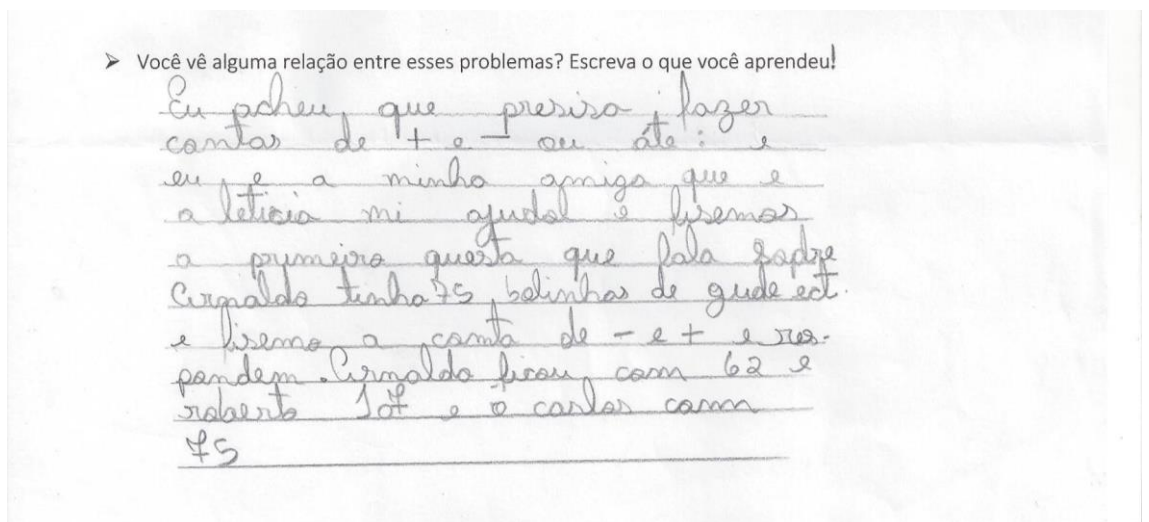 ➤ Você vê alguma relação entre esses problemas? Escreva o que você aprendeu!
Eu acheu que presisa fazer
contas de + e - ou áte : e
eu e a minha amiga que e
a leticia mi ajudol e fisemos
a prımeira questa que fala sobre
Arnaldo tinha 75 bolinhas de gude ect.
e fisemo a conta de - e + e res-
pondem. Arnaldo ficou com 62 e
roberto 107 e o carlos comm
75